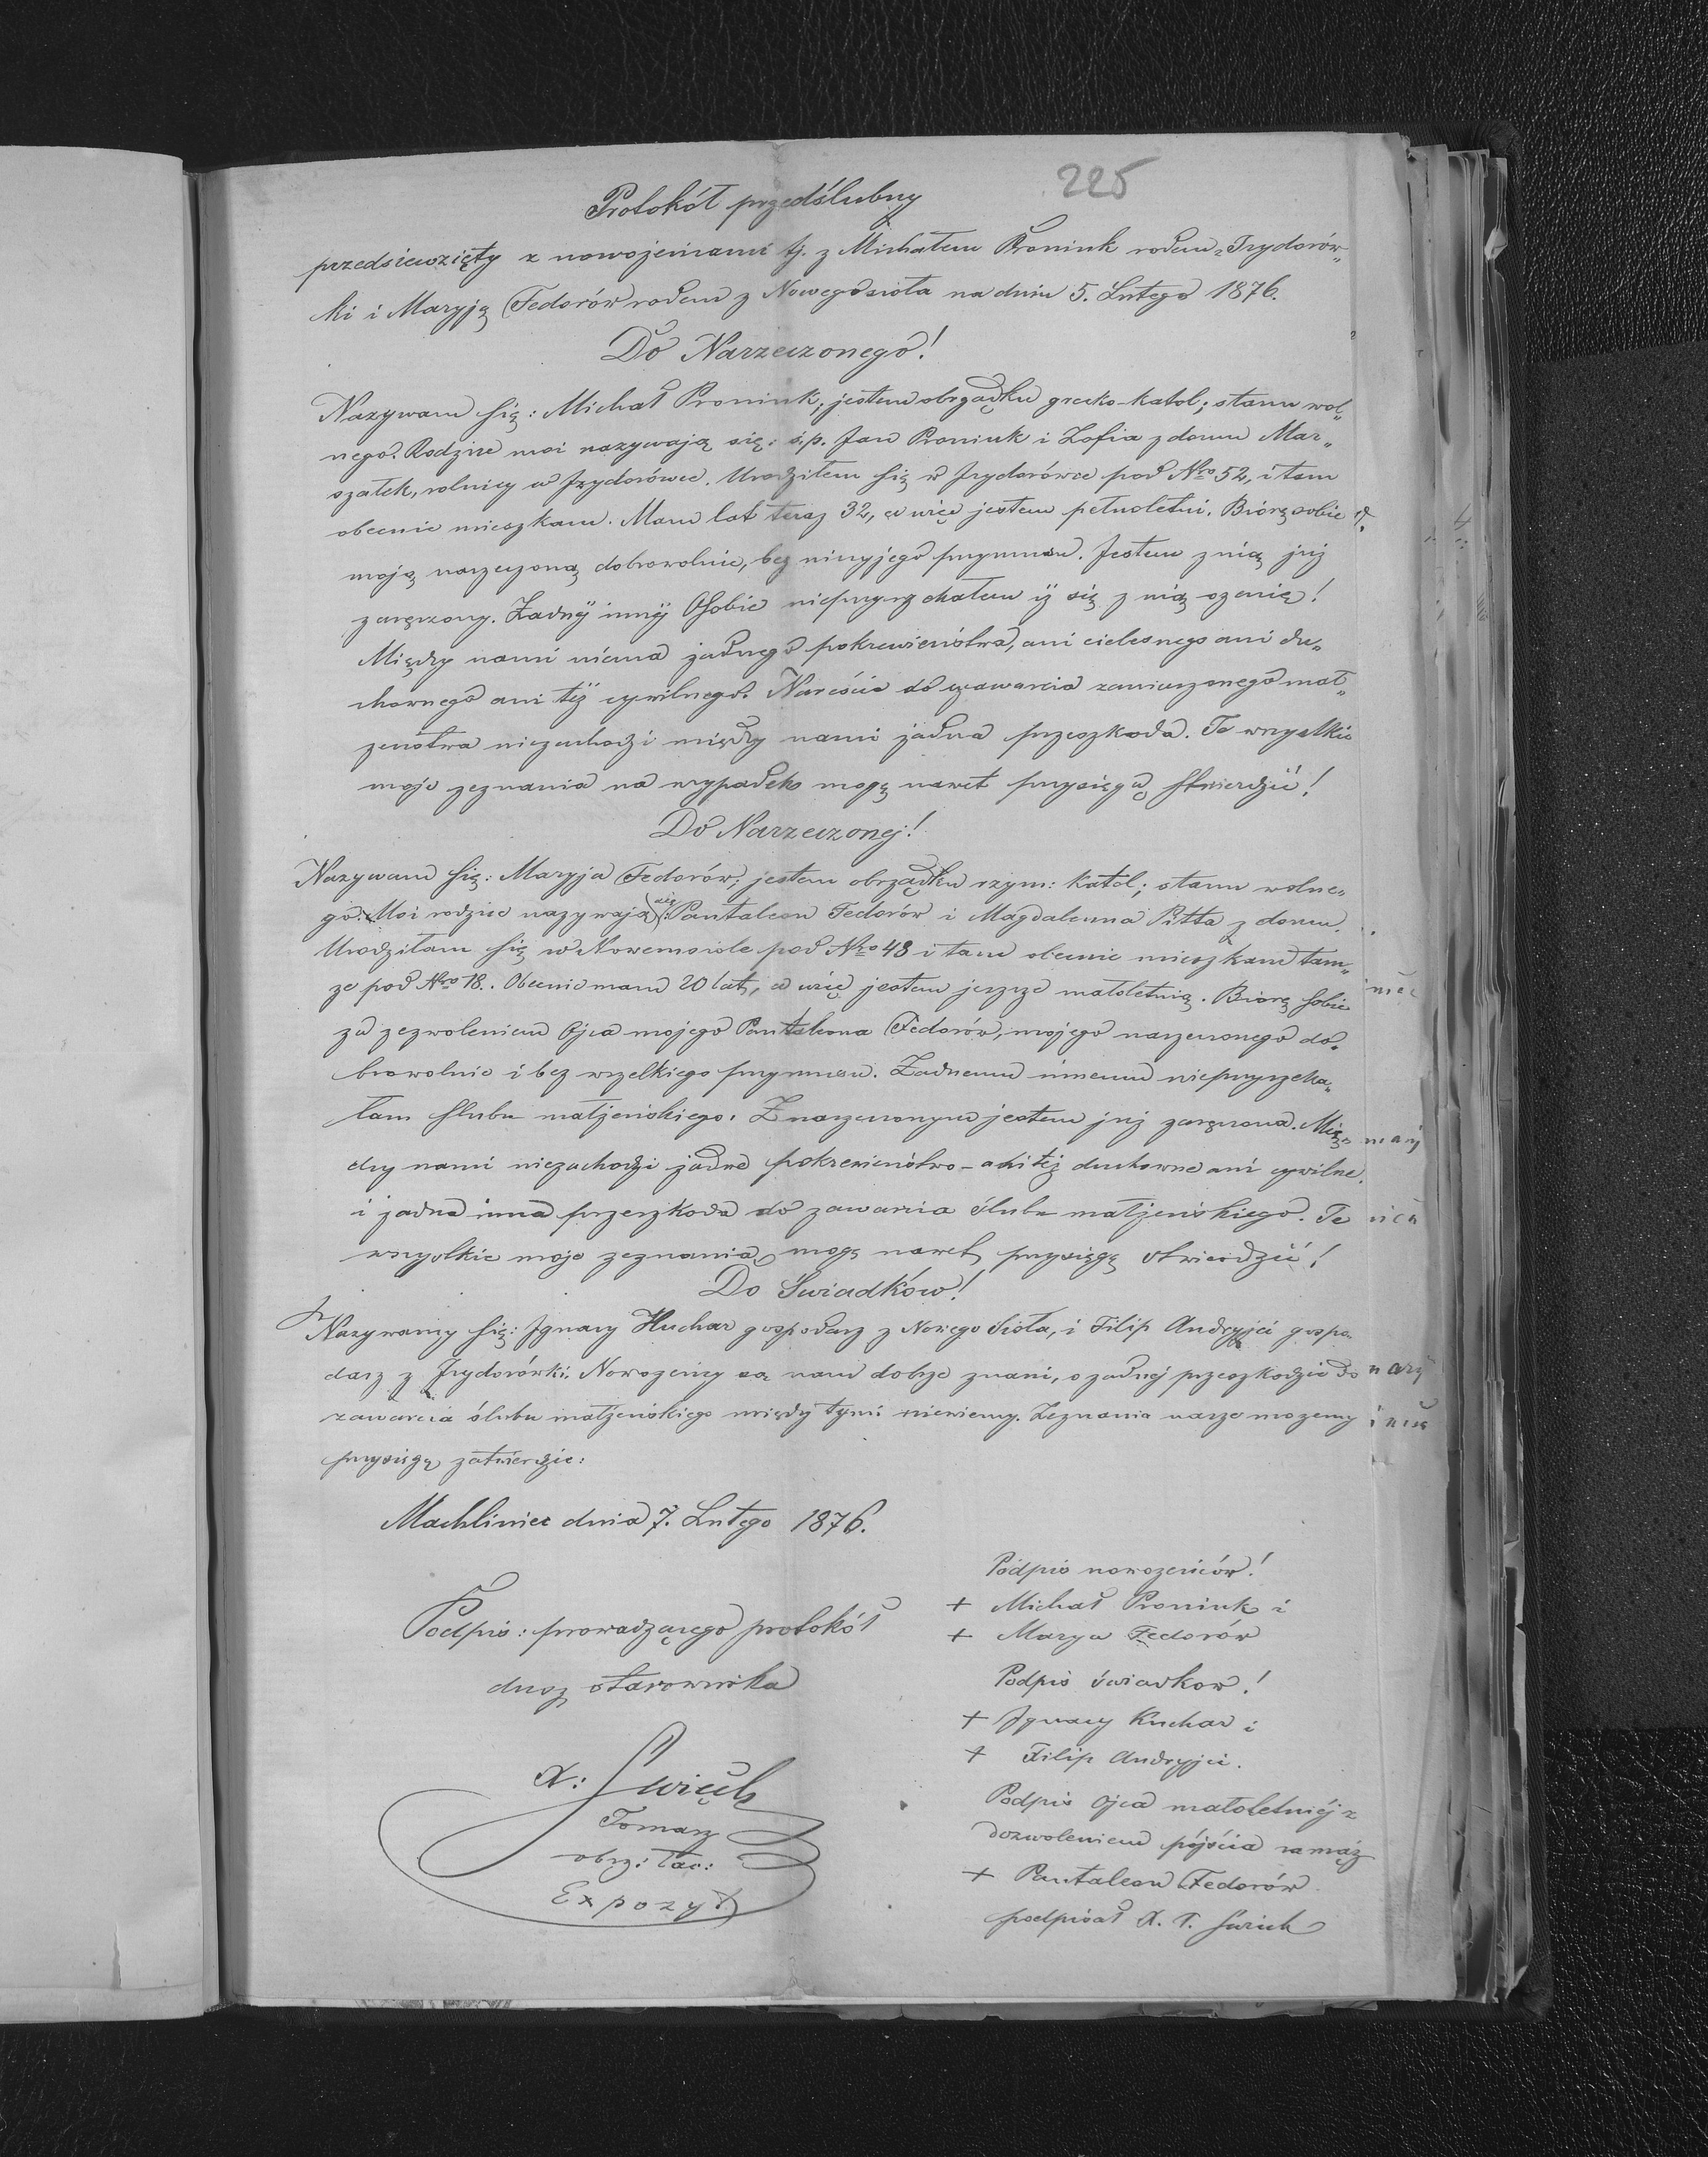 225
Protokół przedślubny
przedsiewzięty z nowożeńcami tj. z Michałem Proniuk rodem z Izydorów„
ki i Maryją Fedorów rodem z Nowegosioła na dniu 5. Lutego 1876.
Do Narzeczonego!
Nazywam się: Michał Proniuk; jestem obrządku grecko-katol; stanu wol„
nego. Rodzice moi nazywają się: ś.p. Jan Proniuk i Zofia z domu Mar„
szałek, rolnicy w Izydorówce. Urodziłem się w Izydorówce pod Nro 52, i tam
obecnie mieszkam. Mam lat teraz 32, a więc jestem pełnoletni. Biorę sobie
moją narzeczoną dobrowolnie, bez niczyjego przymusu. Jestem z nią już
zaręczony. Żadnÿ innÿ Osobie nieprzyrzekałem iż się z nią ożenię!
Między nami niema żadnego pokrewieństwa, ani cielesnego ani du„
chownego ani też cywilnego. Nareście do zawarcia zamierzonego mał„
żeństwa niezachodzi między nami żadna przeszkoda. Te wszystkie
moje zeznania na wypadek mogę nawet przysięgą stwierdzić!
Do Narzeczonej!
Nazywam się: Maryja Fedorów; jestem obrządku rzym: katol; stanu wolne„
go. Moi rodzice nazywają się: Pantaleon Fedorów i Magdalenna Pitta z domu.
Urodziłam się w Nowemsiole pod Nro 48 i tam obecnie mieszkam tam„
że pod Nro 18. Obecnie mam 20 lat, a więc jestem jeszcze małoletnią. Biorę sobie
za zezwoleniem Ojca mojego Pantaleona Fedorów, mojego narzeczonego do„
browolnie i bez wszelkiego przymusu. Żadnemu innemu nieprzyrzeka„
łam ślubu małżeńskiego. Z narzeczonym jestem już zaręczona. Mię„
dzy nami niezachodzi żadne pokrewieństwo - ani też duchowne ani cywilne,
i żadna inna przeszkoda do zawarcia ślubu małżeńskiego. Te
wszystkie moje zeznania mogę nawet przysięgą stwierdzić!
Do Świadków!
Nazywamy się: Ignacy Kuchar gospodarz z Nowego Sioła, i Filip Andryjci gospo„
darz z Izydorówki. Nowożeńcy są nam dobrze znani, o żadnej przeszkodzie do
zawarcia ślubu małżeńskiego między tymi niewiemy. Zeznania nasze możemy
przysięgą zatwierdzić:
Machliniec dnia 7. Lutego 1876.
Podpis: prowadzącego protokół
dusz starownika
X: Święch
Tomasz
obrz: łac:
Expozyt.
Podpis nowożeńców!
+ Michał Proniuk i
+ Marya Fedorów
Podpis świadkow!
+ Ignacy Kuchar i
+ Filip Andryjci.
Podpis Ojca małoletniéj z
dozwoleniem pójścia za mąż
+ Pantaleon Fedorów
podpisał X. T. Święch